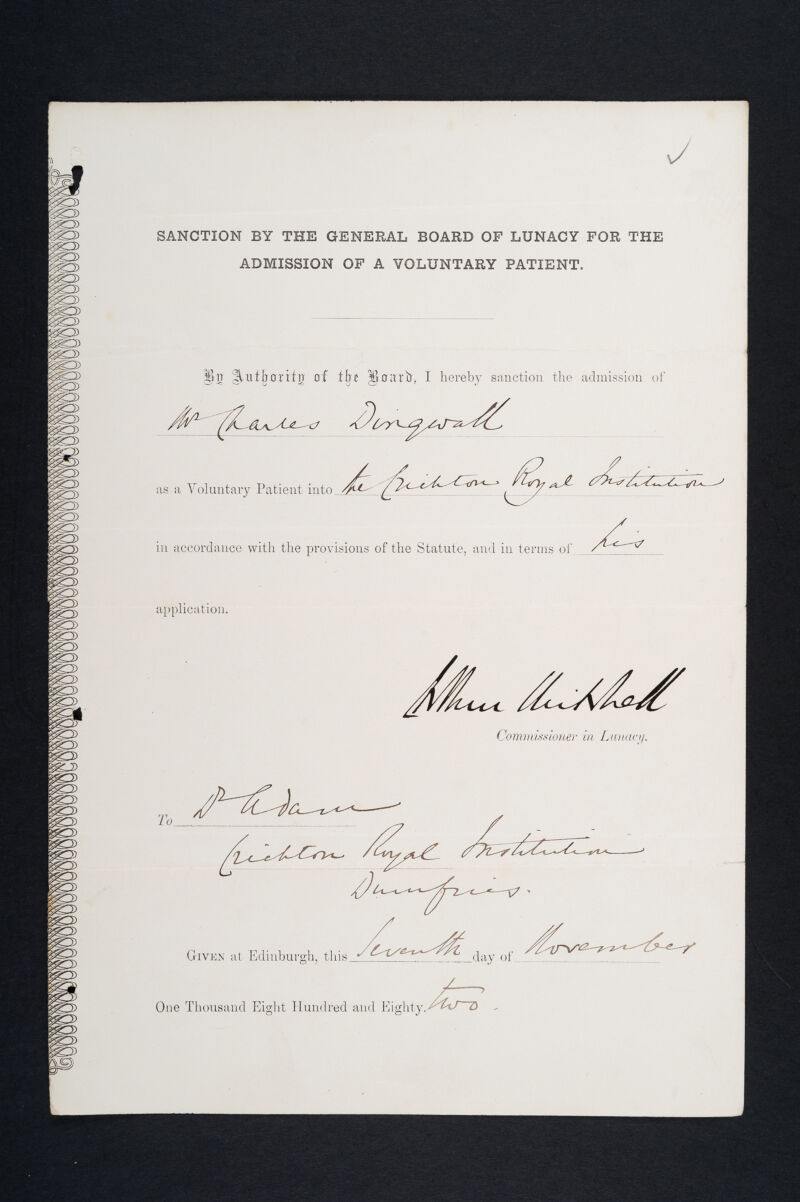 SANCTION BY THE GENERAL BOARD OF LUNACY FOR THE
ADMISSION OF A VOLUNTARY PATIENT.
By Authority of the Board, I hereby sanction the admission of
Mr Charles Dingwall
as a Voluntary Patient into the Crichton Royal Institution
in accordance with the provisions of the Statute, and in terms of his
application.
Arthur Mitchell
Commissioner in Lunacy.
To Dr Adam
Crichton Royal Institution
Dumfries.
GIVEN at Edinburgh, this Seventh day of November
One Thousand Eight Hundred and Eighty, two.